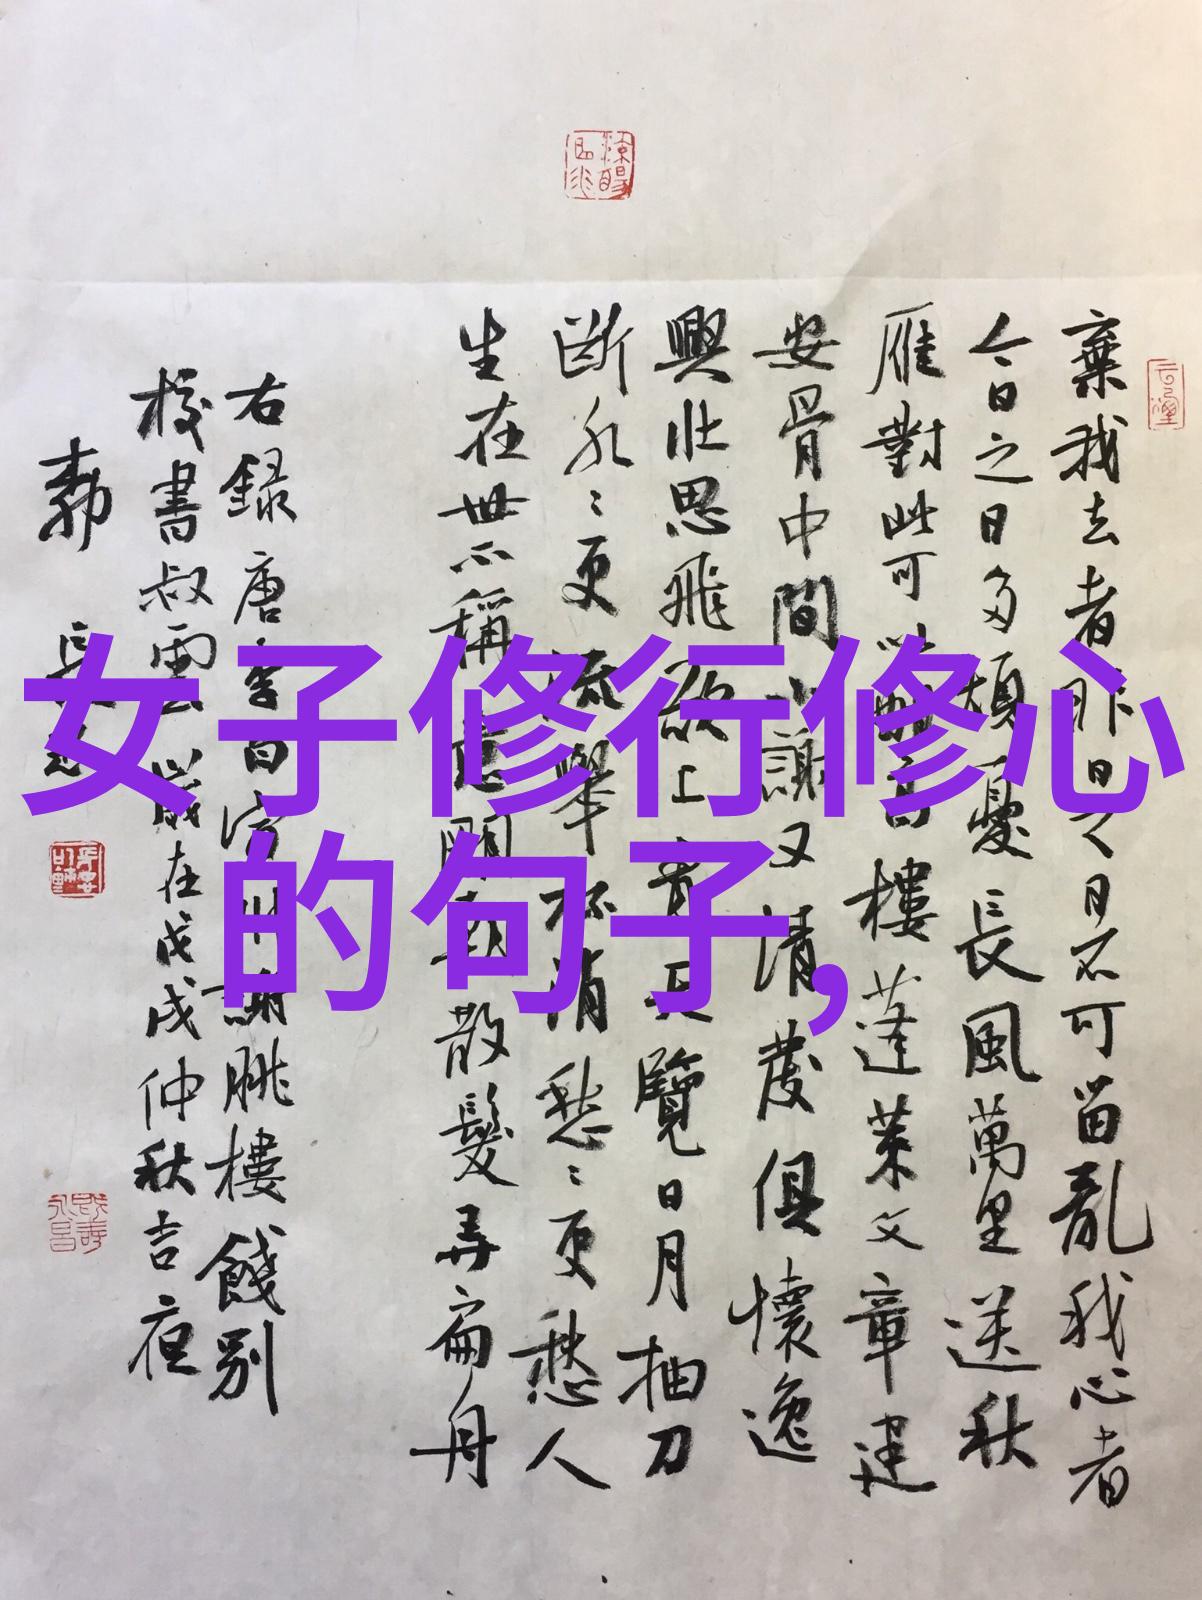 女子修行修心
的句子,
棄我去者昨日之日不可留亂我心者
今日之日多煩憂長風萬里送秋
雁對此可以酣高樓蓬萊文章建
安骨中間小謝又清發俱懷逸
興壯思飛欲上青天覽日月抽刀
斷水〻更流舉杯消愁〻更愁人
生在世不稱意明朝散髮弄扁舟
右録唐李白宣州謝朓樓餞別
校書叔雲歲在戊戌仲秋吉夜